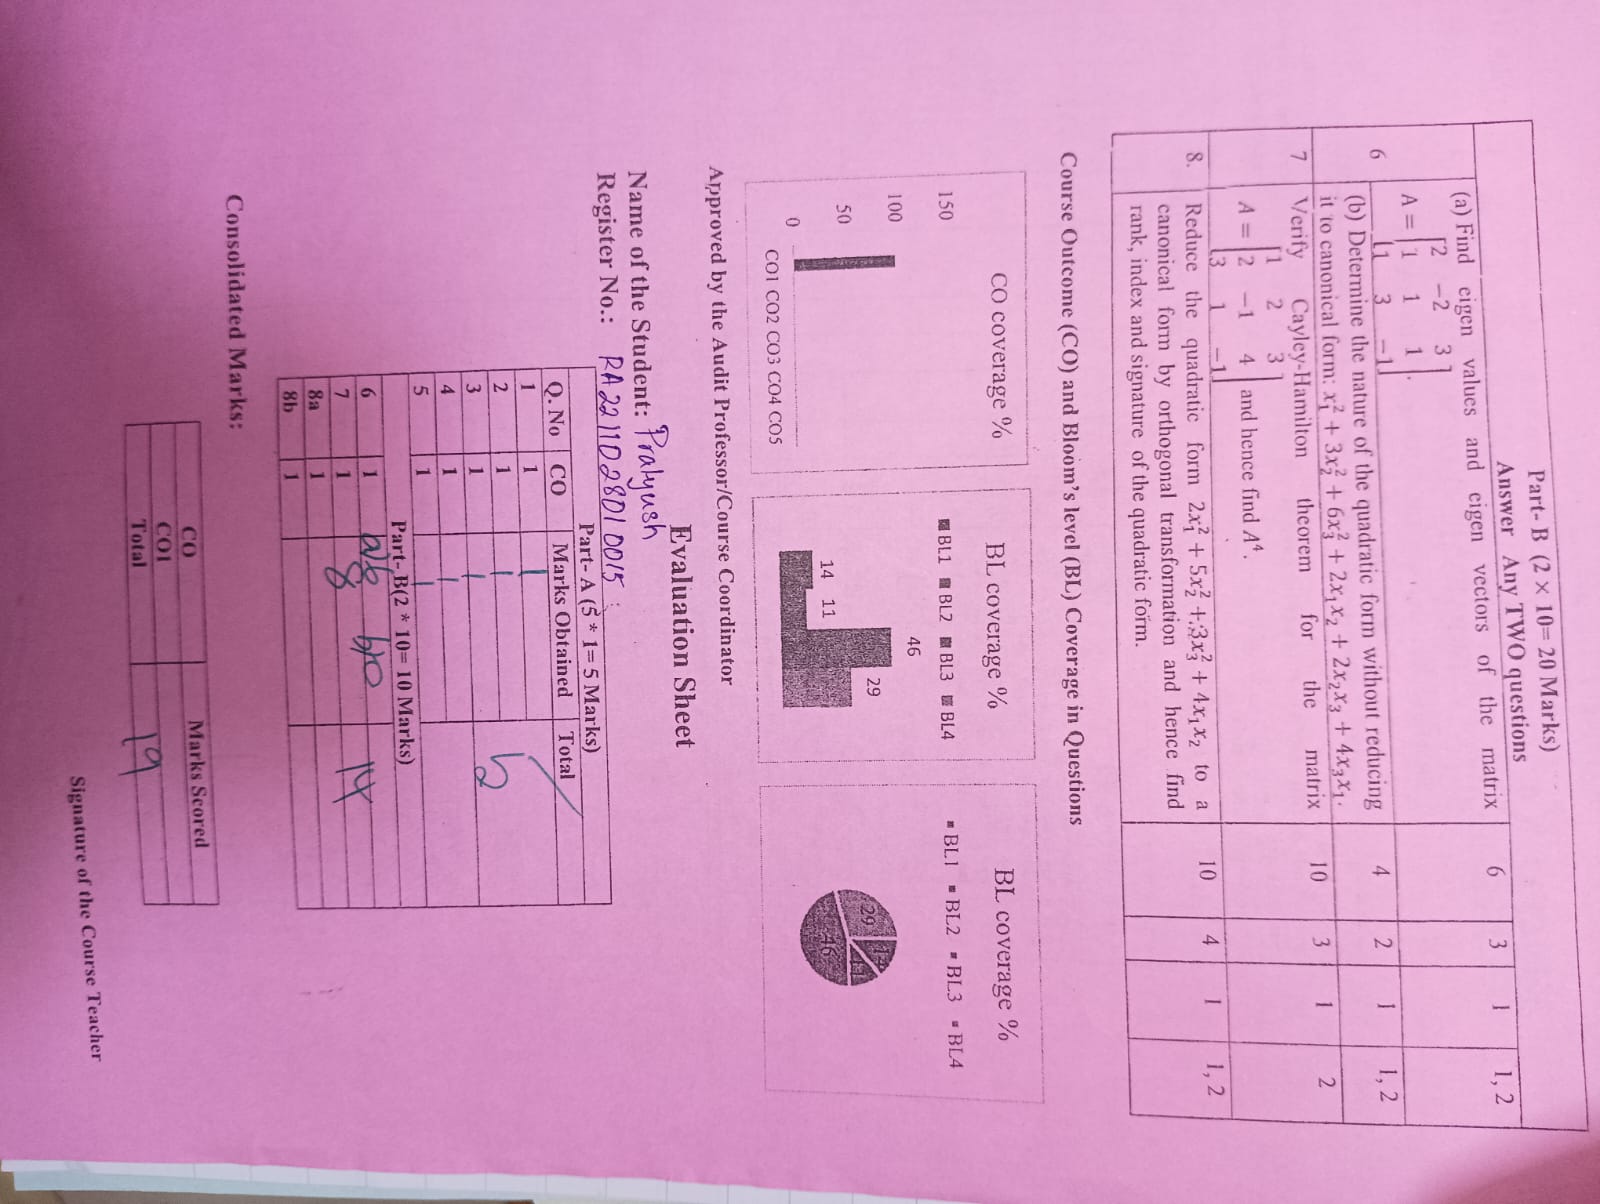 Part- B (2 × 10= 20 Marks)
Answer Any TWO questions
6 (a) Find eigen values and eigen vectors of the matrix 6 3 1 1, 2
A = [2 -2 3; 1 1 1; 1 3 -1].
(b) Determine the nature of the quadratic form without reducing 4 2 1 1, 2
it to canonical form: x₁² + 3x₂² + 6x₃² + 2x₁x₂ + 2x₂x₃ + 4x₃x₁.
7 Verify Cayley-Hamilton theorem for the matrix 10 3 1 2
A = [1 2 3; 2 -1 4; 3 1 -1] and hence find A⁴.
8. Reduce the quadratic form 2x₁² + 5x₂² + 3x₃² + 4x₁x₂ to a 10 4 1 1, 2
canonical form by orthogonal transformation and hence find
rank, index and signature of the quadratic form.
Course Outcome (CO) and Bloom's level (BL) Coverage in Questions
CO coverage %
150
100
50
0
CO1 CO2 CO3 CO4 CO5
BL coverage %
BL1 BL2 BL3 BL4
46
29
14 11
BL coverage %
BL1 BL2 BL3 BL4
29 14
11
46
Approved by the Audit Professor/Course Coordinator
Evaluation Sheet
Name of the Student: Pratyush
Register No.: RA2211028010015
Part- A (5 * 1= 5 Marks)
Q. No CO Marks Obtained Total
1 1 1
2 1 1 5
3 1 1
4 1 1
5 1 1
Part- B(2 * 10= 10 Marks)
6 1 a/6 b/0
7 1 8 14
8a 1
8b 1
Consolidated Marks:
CO Marks Scored
CO1
Total 19
Signature of the Course Teacher